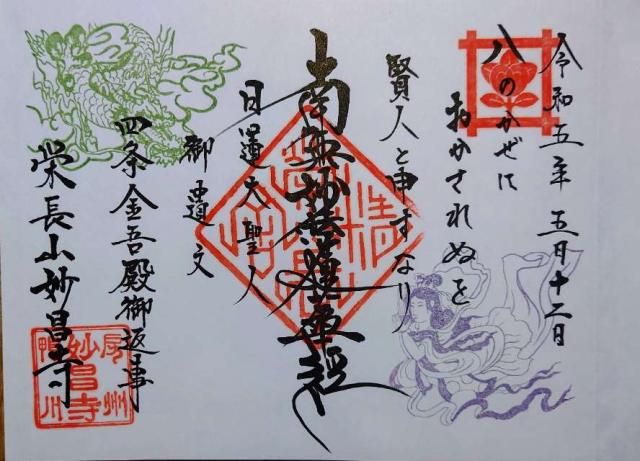 令和五年五月十二日
八のかぜに
おかされぬを
賢人と申すなり
南無妙法蓮華経
日蓮大聖人
御遺文
四条金吾殿御返事
栄長山妙昌寺
房州
妙昌寺
鴨川